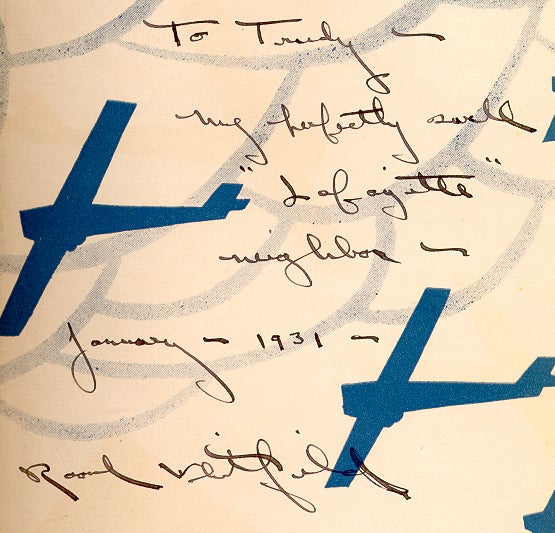 To Trudy —
my perfectly swell
"Lafayette"
neighbor —
January — 1931 —
Raoul Whitfield